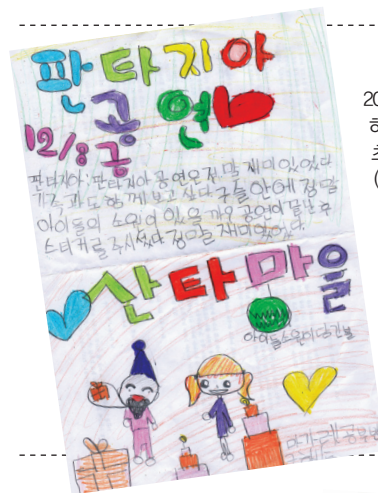 판타지아
공연
12/8 금
판타지아! 판타지아 공연은 정말 재미있었다
가족과도 함께 보고 싶다 구슬 안에 정말
아이들의 소원이 있을까요 공연이 끝난 후
스티커를 주시셨다 정말 재미있었다.
산타마을
아이들소원이 담긴볼
20
(